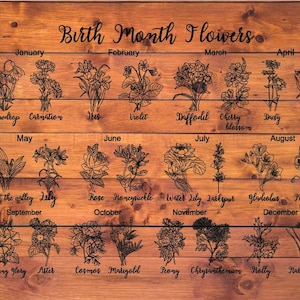 Birth Month Flowers
January February March April
Carnation Iris Violet Daffodil Cherry blossom Daisy
May June July August
the valley Lily Rose Honeysuckle Water Lily Larkspur Gladiolus
September October November December
Aster Cosmos Marigold Peony Chrysanthemum Holly